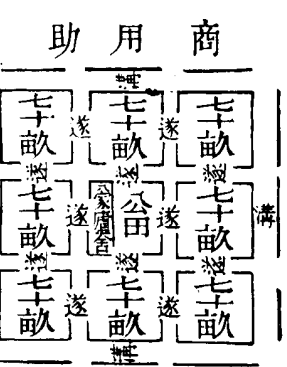 商用助
溝
七十畝
遂
七十畝
遂
七十畝
遂
遂
遂
溝
七十畝
遂
公田
遂
七十畝
遂
遂
遂
七十畝
遂
七十畝
遂
七十畝
溝